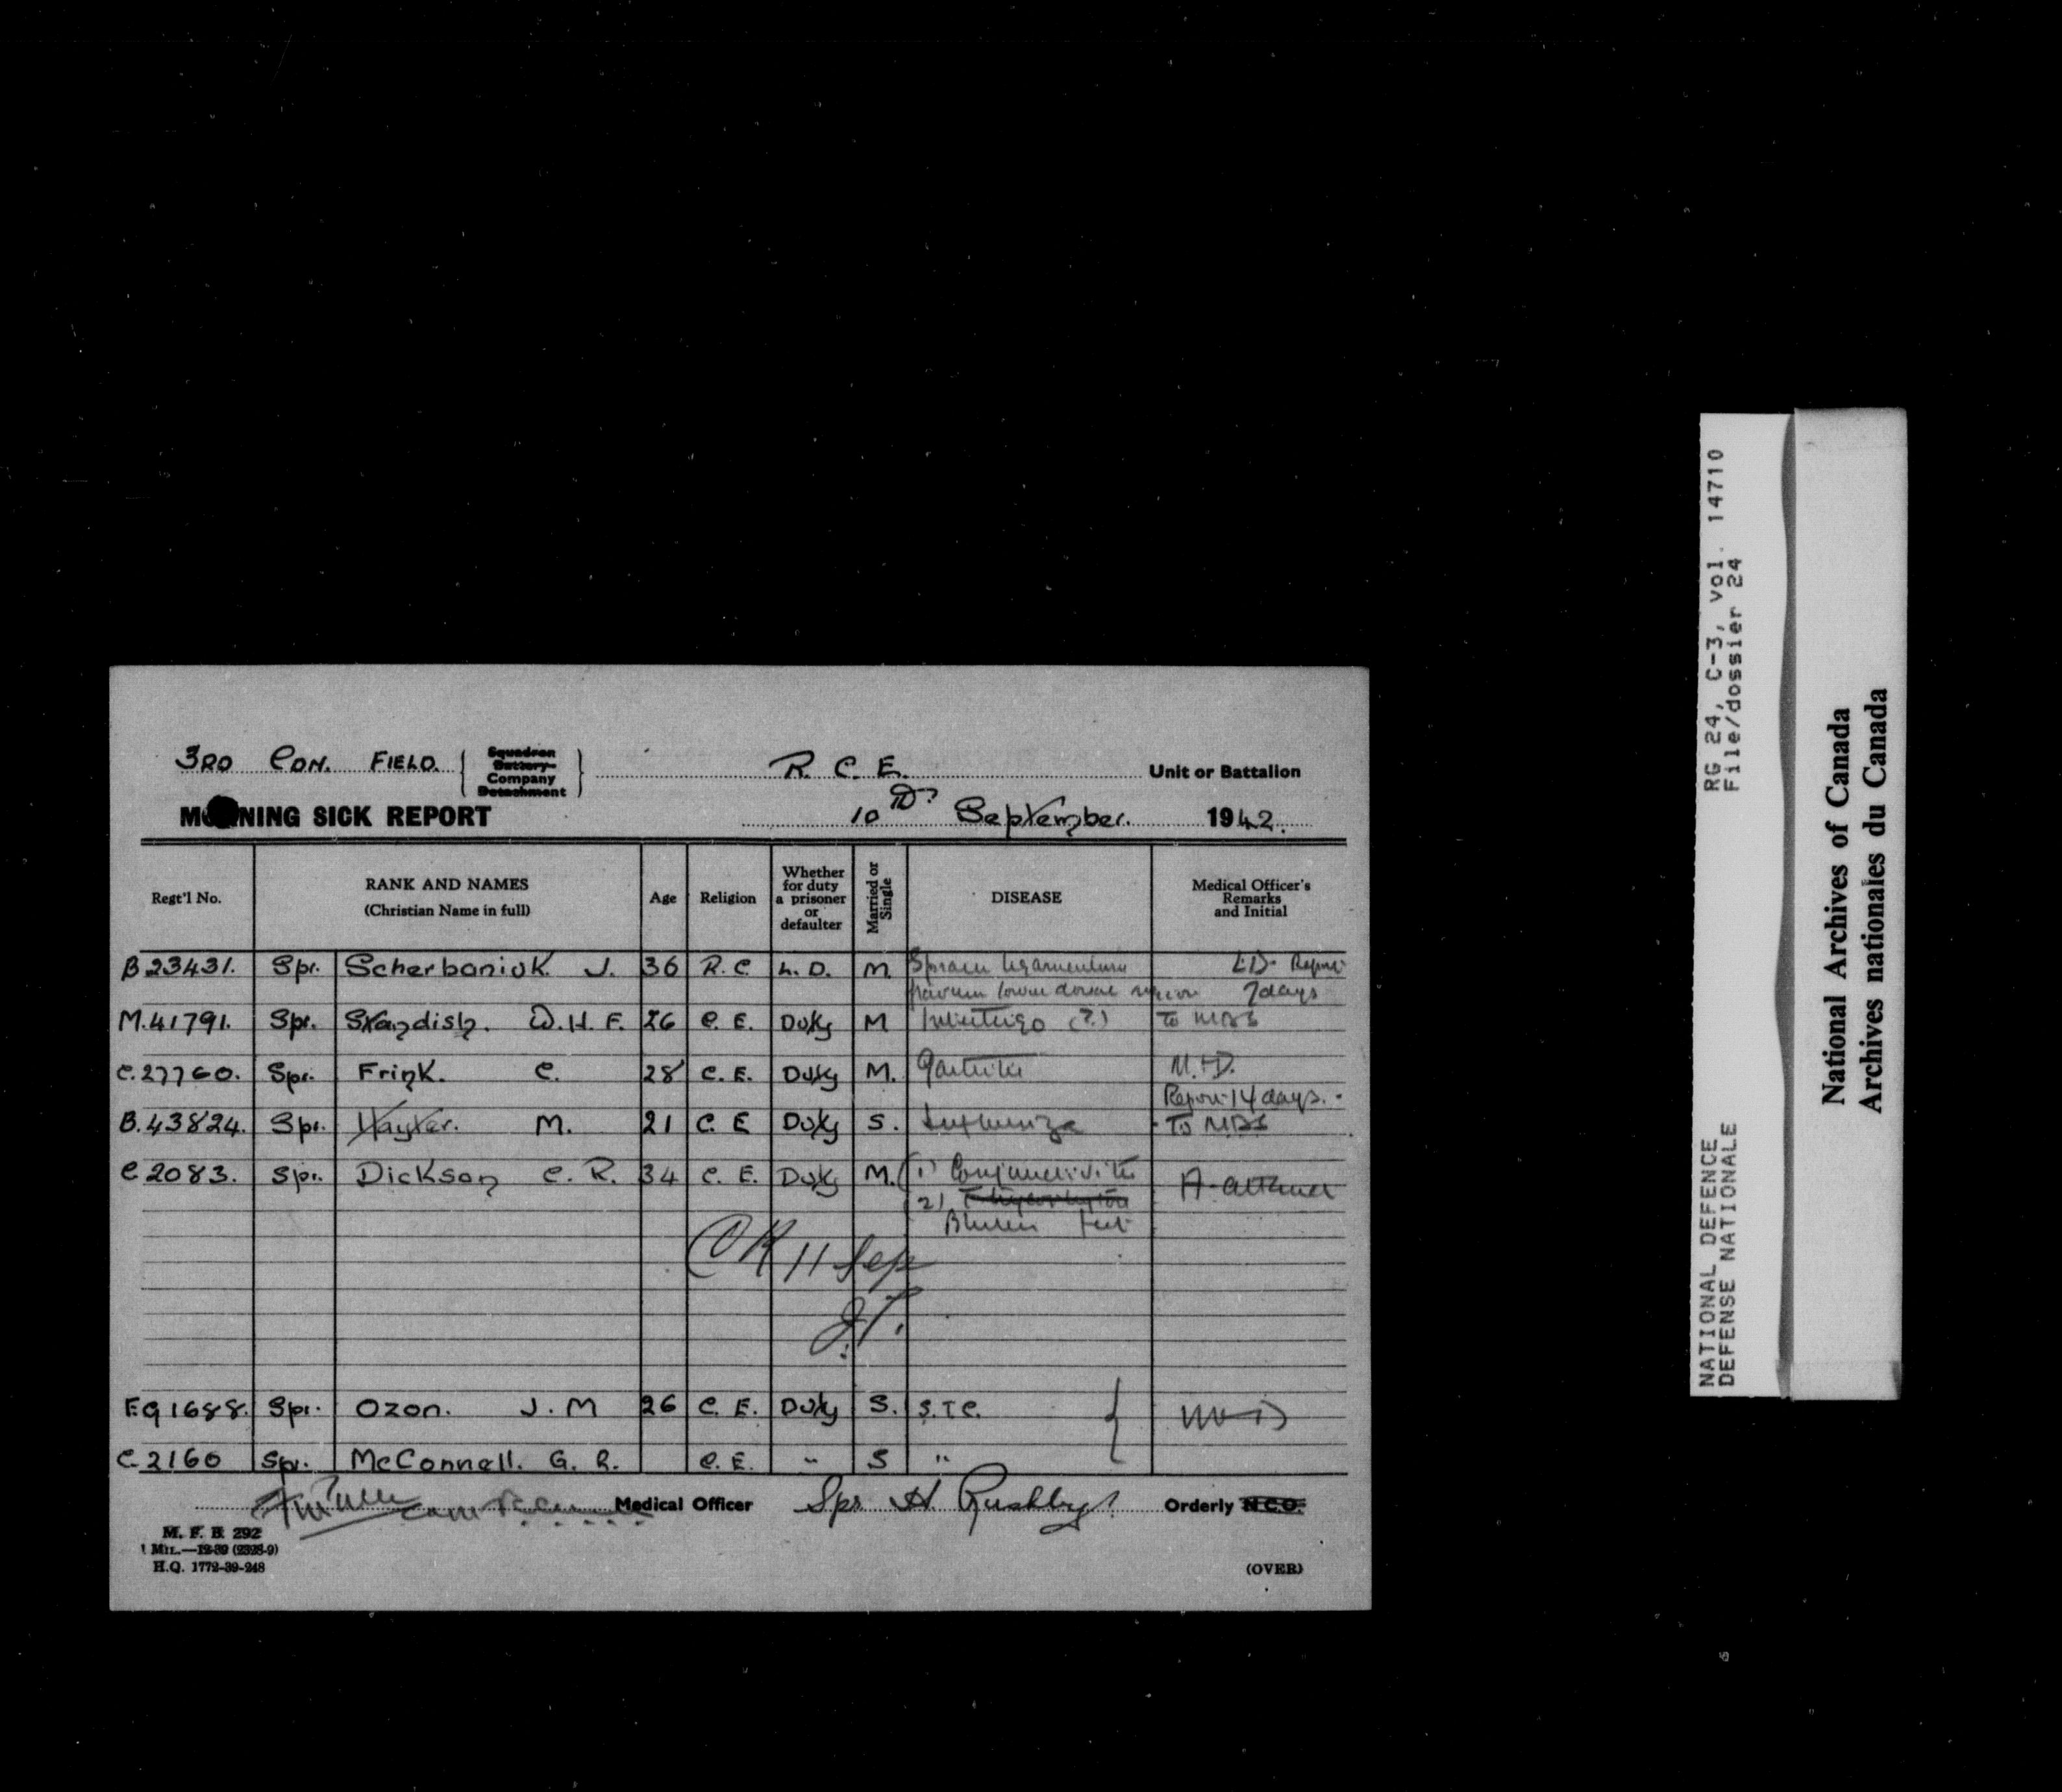 3RD CDN. FIELD. Squadron Battery Company Detachment R. C. E. Unit or Battalion
MORNING SICK REPORT 10th September. 1942.
Regt'l No. RANK AND NAMES (Christian Name in full) Age Religion Whether for duty a prisoner or defaulter Married or Single DISEASE Medical Officer's Remarks and Initial
B23431. Spr. Scherbaniuk J. 36 R.C. L.D. M. Sprain ligamentum LD Report
lower dorsal region 7 days
M.41791. Spr. Standish. W.H.F. 26 C.E. Duty M Impetigo (?) To MDS
C.27760. Spr. Frink. C. 28 C.E. Duty M. Gastritis M.+D.
Report 14 days.
B.43824. Spr. Hayter. M. 21 C.E Duty S. Influenza To MDS
C2083. Spr. Dickson C.R. 34 C.E. Duty M. (1) Conjunctivitis A-attend
2)
Blisters feet
OK 11 Sep
J.T.
F.91688. Spr. Ozon. J.M 26 C.E. Duty S. S.T.C. M+D
C2160 Spr. McConnell. G.R. C.E. " S "
Medical Officer Spr H Rushby Orderly N.C.O.
M. F. B. 292
1 MIL.—12-39 (2328-9)
H.Q. 1772-39-248
(OVER)
RG 24, C-3, vol. 14710
File/dossier 24
NATIONAL DEFENCE
DEFENSE NATIONALE
National Archives of Canada
Archives nationales du Canada